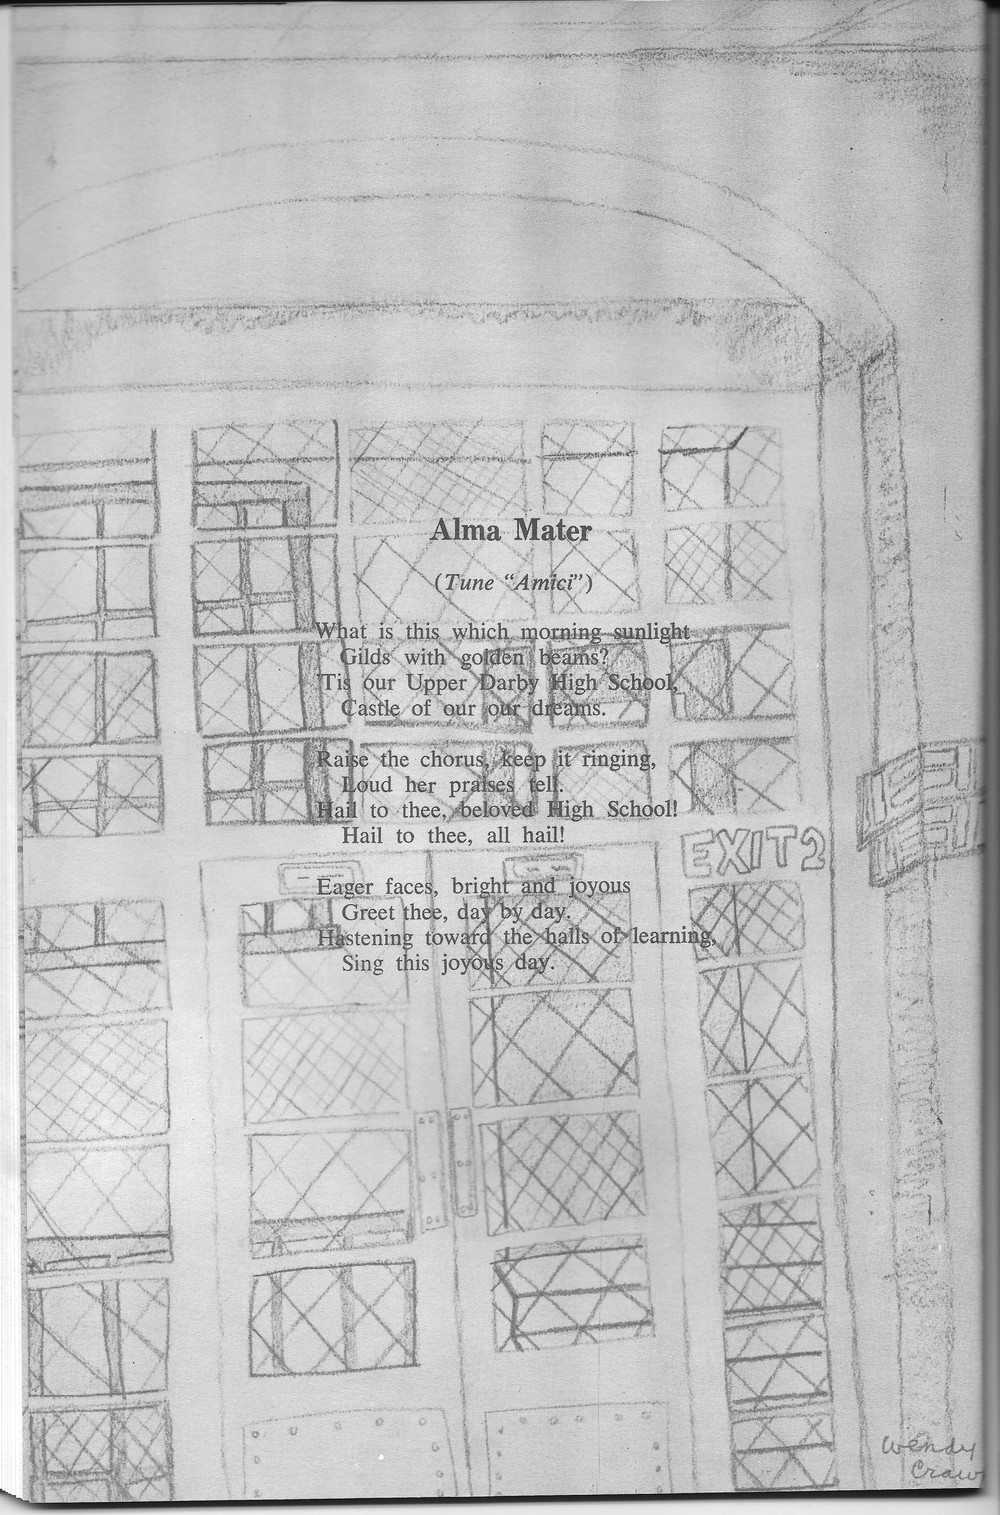 Alma Mater
(Tune "Amici")
What is this which morning sunlight
Gilds with golden beams?
'Tis our Upper Darby High School,
Castle of our our dreams.
Raise the chorus, keep it ringing,
Loud her praises tell.
Hail to thee, beloved High School!
Hail to thee, all hail!
Eager faces, bright and joyous
Greet thee, day by day.
Hastening toward the halls of learning,
Sing this joyous day.
EXIT 2
Wendy
Craw